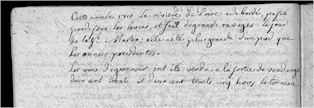 Cette année 1710 la rivière de Loire a débordé, passé
par dessus les levées, et fait de grands ravages le jour
de la St Martin; elle a été plus grande d'un pied que
les années précédentes.
Les vins d'Epernoir ont été vendu a la sortie de vendange
deux cent trente et deux cent trente cinq livres le tonneau